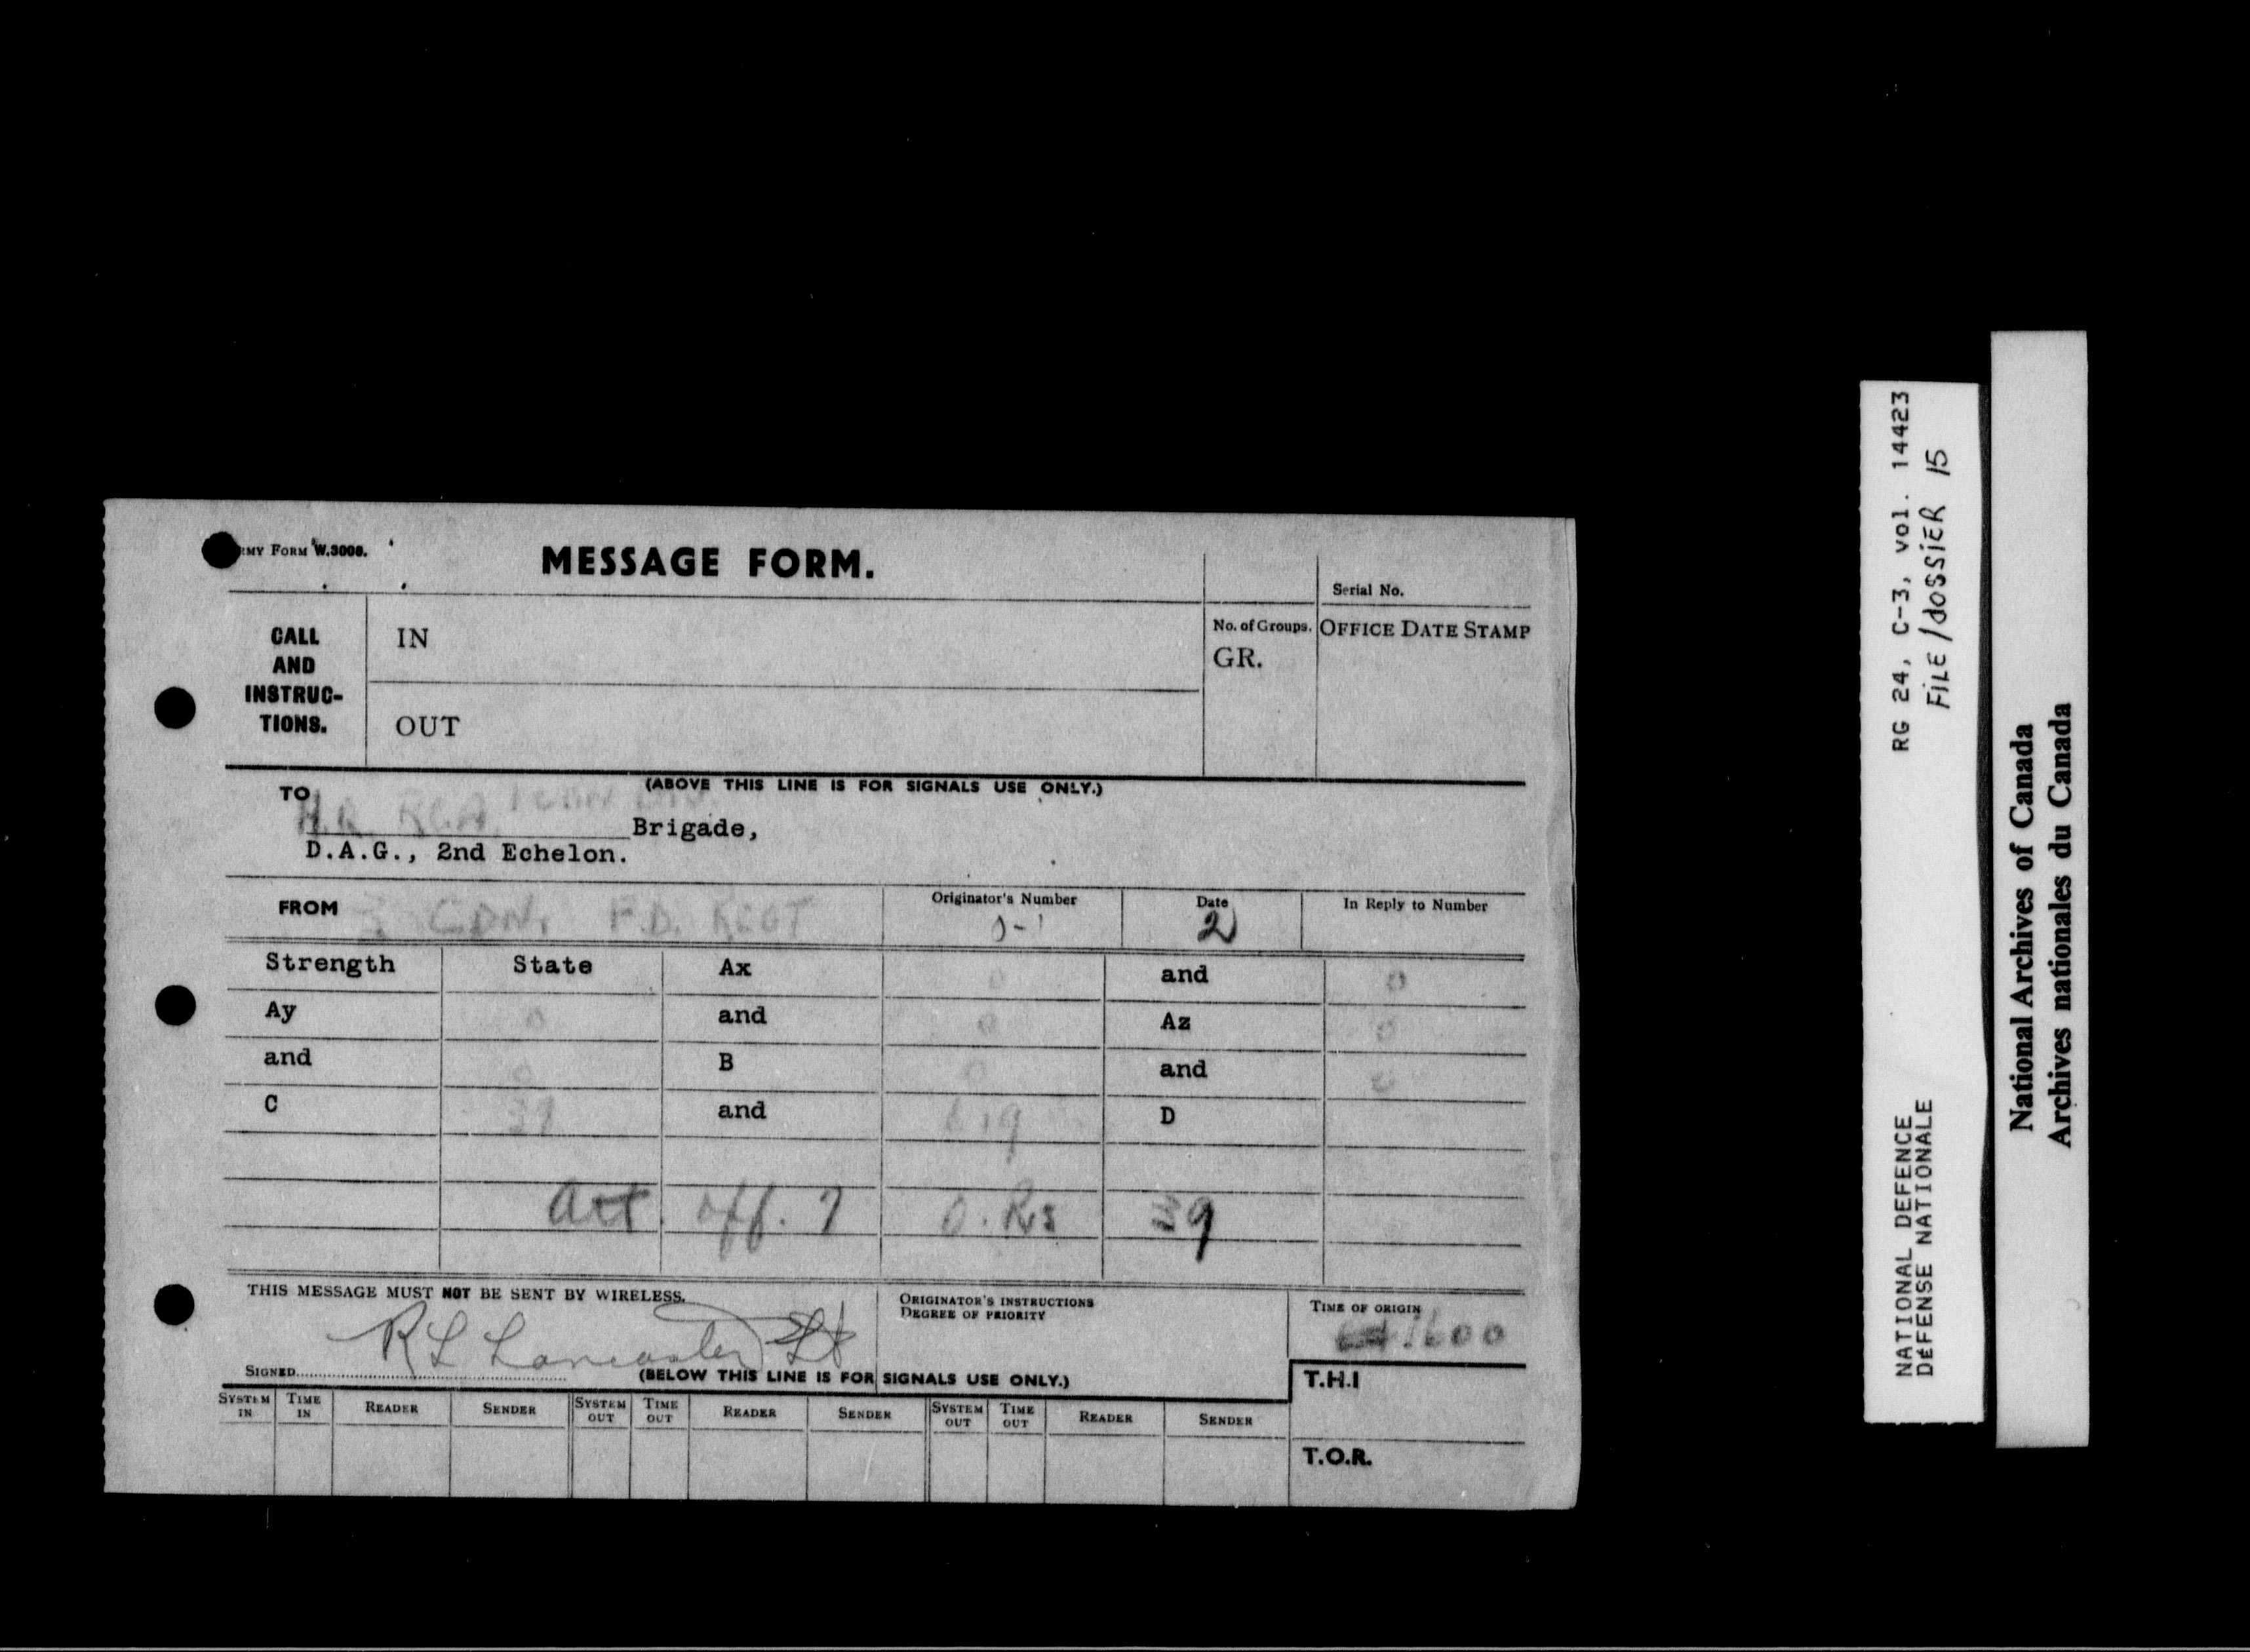 ARMY FORM W.3008.
MESSAGE FORM.
Serial No.
CALL AND INSTRUC-TIONS.
IN
OUT
No. of Groups.
GR.
OFFICE DATE STAMP
(ABOVE THIS LINE IS FOR SIGNALS USE ONLY.)
TO
H.Q. RCA Brigade,
D.A.G., 2nd Echelon.
FROM CDN. F.D. REGT
Originator's Number
Date 2
In Reply to Number
Strength State Ax 0 and 0
Ay 0 and 0 Az 0
and 0 B 0 and 0
C 39 and 619 D
Att. off. 7 O.Rs 39
THIS MESSAGE MUST NOT BE SENT BY WIRELESS.
ORIGINATOR'S INSTRUCTIONS
DEGREE OF PRIORITY
TIME OF ORIGIN
1600
SIGNED R L Lancaster Lt
(BELOW THIS LINE IS FOR SIGNALS USE ONLY.)
T.H.I
SYSTEM IN TIME IN READER SENDER SYSTEM OUT TIME OUT READER SENDER SYSTEM OUT TIME OUT READER SENDER
T.O.R.
RG 24, C-3, vol. 14423
FILE/dOSSiER 15
NATIONAL DEFENCE
DÉFENSE NATIONALE
National Archives of Canada
Archives nationales du Canada